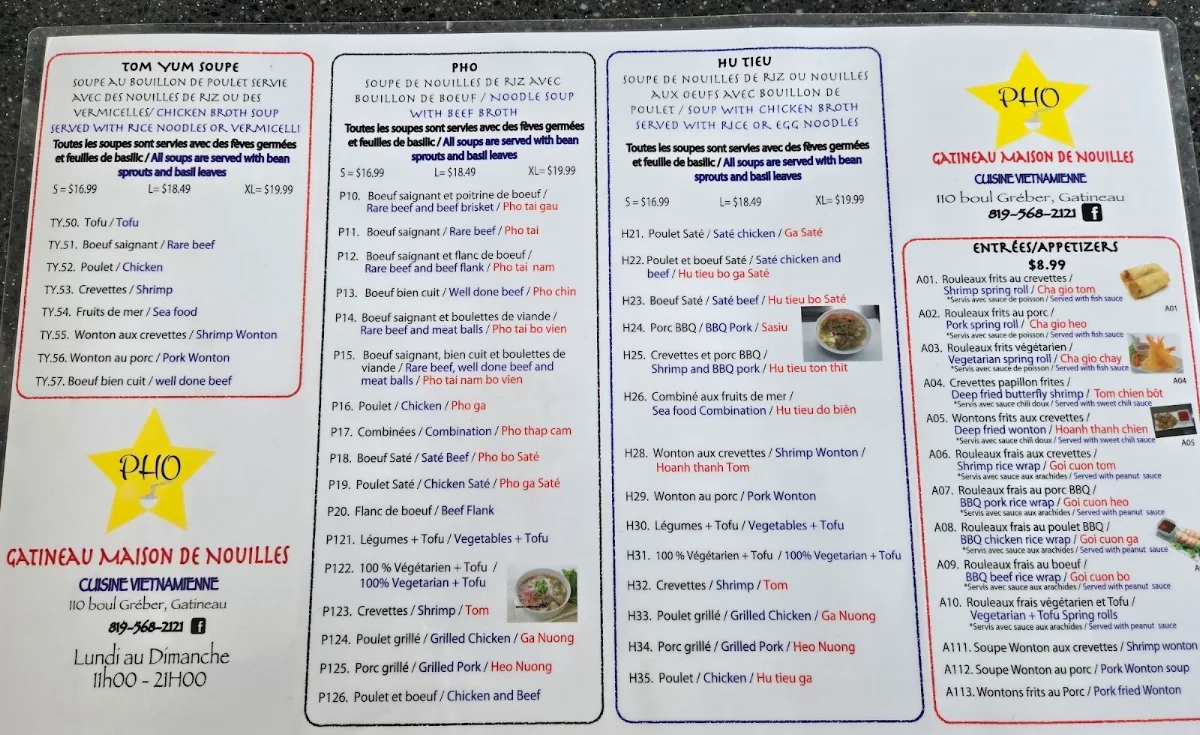 TOM YUM SOUPE
SOUPE AU BOUILLON DE POULET SERVIE
AVEC DES NOUILLES DE RIZ OU DES
VERMICELLES/ CHICKEN BROTH SOUP
SERVED WITH RICE NOODLES OR VERMICELLI
Toutes les soupes sont servies avec des fèves germées
et feuilles de basilic / All soups are served with bean
sprouts and basil leaves
S = $16.99 L= $18.49 XL= $19.99
TY.50. Tofu / Tofu
TY.51. Boeuf saignant / Rare beef
TY.52. Poulet / Chicken
TY.53. Crevettes / Shrimp
TY.54. Fruits de mer / Sea food
TY.55. Wonton aux crevettes / Shrimp Wonton
TY.56. Wonton au porc / Pork Wonton
TY.57. Boeuf bien cuit / well done beef
PHO
GATINEAU MAISON DE NOUILLES
CUISINE VIETNAMIENNE
110 boul Gréber, Gatineau
819-568-2121 f
Lundi au Dimanche
11h00 - 21H00
PHO
SOUPE DE NOUILLES DE RIZ AVEC
BOUILLON DE BOEUF / NOODLE SOUP
WITH BEEF BROTH
Toutes les soupes sont servies avec des fèves germées
et feuilles de basilic / All soups are served with bean
sprouts and basil leaves
S = $16.99 L= $18.49 XL= $19.99
P10. Boeuf saignant et poitrine de boeuf /
Rare beef and beef brisket / Pho tai gau
P11. Boeuf saignant / Rare beef / Pho tai
P12. Boeuf saignant et flanc de boeuf /
Rare beef and beef flank / Pho tai nam
P13. Boeuf bien cuit / Well done beef / Pho chin
P14. Boeuf saignant et boulettes de viande /
Rare beef and meat balls / Pho tai bo vien
P15. Boeuf saignant, bien cuit et boulettes de
viande / Rare beef, well done beef and
meat balls / Pho tai nam bo vien
P16. Poulet / Chicken / Pho ga
P17. Combinées / Combination / Pho thap cam
P18. Boeuf Saté / Saté Beef / Pho bo Saté
P19. Poulet Saté / Chicken Saté / Pho ga Saté
P20. Flanc de boeuf / Beef Flank
P121. Légumes + Tofu / Vegetables + Tofu
P122. 100 % Végétarien + Tofu /
100% Vegetarian + Tofu
P123. Crevettes / Shrimp / Tom
P124. Poulet grillé / Grilled Chicken / Ga Nuong
P125. Porc grillé / Grilled Pork / Heo Nuong
P126. Poulet et boeuf / Chicken and Beef
HU TIEU
SOUPE DE NOUILLES DE RIZ OU NOUILLES
AUX OEUFS AVEC BOUILLON DE
POULET / SOUP WITH CHICKEN BROTH
SERVED WITH RICE OR EGG NOODLES
Toutes les soupes sont servies avec des fèves germées
et feuille de basilic / All soups are served with bean
sprouts and basil leaves
S = $16.99 L= $18.49 XL= $19.99
H21. Poulet Saté / Saté chicken / Ga Saté
H22. Poulet et boeuf Saté / Saté chicken and
beef / Hu tieu bo ga Saté
H23. Boeuf Saté / Saté beef / Hu tieu bo Saté
H24. Porc BBQ / BBQ Pork / Sasiu
H25. Crevettes et porc BBQ /
Shrimp and BBQ pork / Hu tieu ton thit
H26. Combiné aux fruits de mer /
Sea food Combination / Hu tieu do biên
H28. Wonton aux crevettes / Shrimp Wonton /
Hoanh thanh Tom
H29. Wonton au porc / Pork Wonton
H30. Légumes + Tofu / Vegetables + Tofu
H31. 100 % Végétarien + Tofu / 100% Vegetarian + Tofu
H32. Crevettes / Shrimp / Tom
H33. Poulet grillé / Grilled Chicken / Ga Nuong
H34. Porc grillé / Grilled Pork / Heo Nuong
H35. Poulet / Chicken / Hu tieu ga
PHO
GATINEAU MAISON DE NOUILLES
CUISINE VIETNAMIENNE
110 boul Gréber, Gatineau
819-568-2121 f
ENTRÉES/APPETIZERS
$8.99
A01. Rouleaux frits au crevettes /
Shrimp spring roll / Cha gio tom
*Servis avec sauce de poisson / Served with fish sauce
A01
A02. Rouleaux frits au porc /
Pork spring roll / Cha gio heo
*Servis avec sauce de poisson / Served with fish sauce
A03. Rouleaux frits végétarien /
Vegetarian spring roll / Cha gio chay
*Servis avec sauce de poisson / Served with fish sauce
A04
A04. Crevettes papillon frites /
Deep fried butterfly shrimp / Tom chien bôt
*Servis avec sauce chili doux / Served with sweet chili sauce
A05. Wontons frits aux crevettes /
Deep fried wonton / Hoanh thanh chien
*Servis avec sauce chili doux / Served with sweet chili sauce
A05
A06. Rouleaux frais aux crevettes /
Shrimp rice wrap / Goi cuon tom
*Servis avec sauce aux arachides / Served with peanut sauce
A07. Rouleaux frais au porc BBQ /
BBQ pork rice wrap / Goi cuon heo
*Servis avec sauce aux arachides / Served with peanut sauce
A08. Rouleaux frais au poulet BBQ /
BBQ chicken rice wrap / Goi cuon ga
*Servis avec sauce aux arachides / Served with peanut sauce
A09. Rouleaux frais au boeuf /
BBQ beef rice wrap / Goi cuon bo
*Servis avec sauce aux arachides / Served with peanut sauce
A10. Rouleaux frais végétarien et Tofu /
Vegetarian + Tofu Spring rolls
*Servis avec sauce aux arachides / Served with peanut sauce
A111. Soupe Wonton aux crevettes / Shrimp wonton
A112. Soupe Wonton au porc / Pork Wonton soup
A113. Wontons frits au Porc / Pork fried Wonton